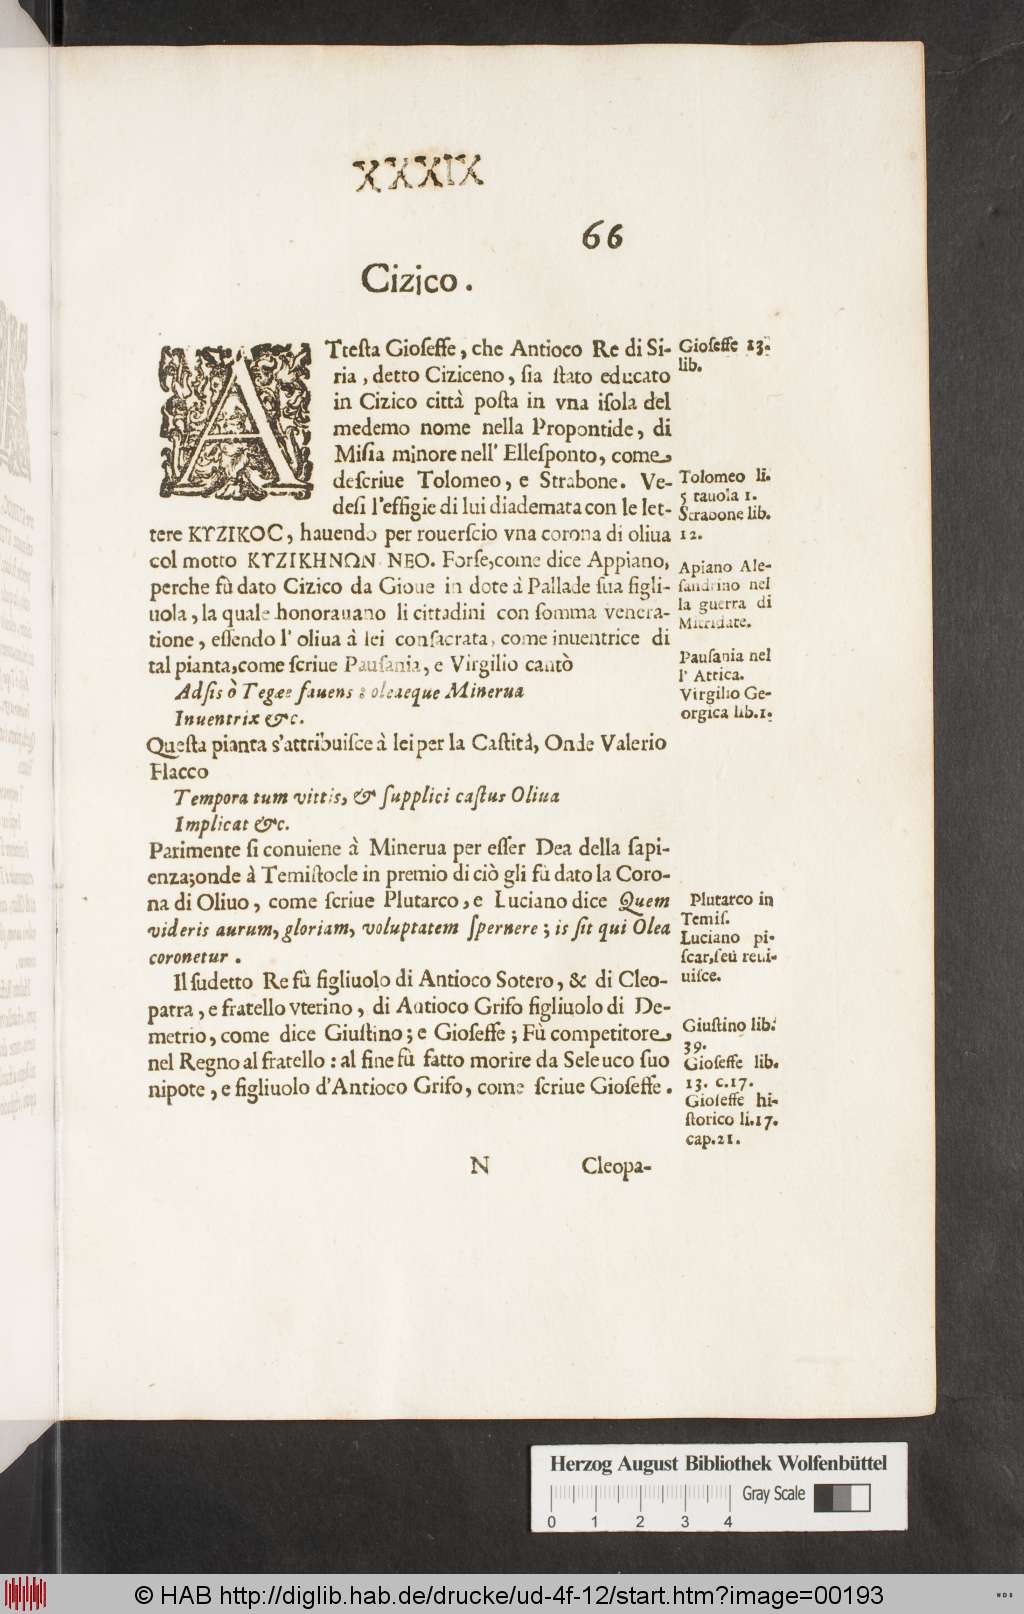 XXXIX
66
Cizico.
ATtesta Gioseffe, che Antioco Re di Si-
ria, detto Ciziceno, sia stato educato
in Cizico città posta in vna isola del
medemo nome nella Propontide, di
Misia minore nell' Ellesponto, come
descriue Tolomeo, e Strabone. Ve-
desi l'effigie di lui diademata con le let-
tere ΚΥΖΙΚΟϹ, hauendo per rouerscio vna corona di oliua
col motto ΚΥΖΙΚΗΝΩΝ ΝΕΟ. Forse, come dice Appiano,
perche fù dato Cizico da Gioue in dote à Pallade sua figli-
uola, la quale honorauano li cittadini con somma venera-
tione, essendo l' oliua à lei consacrata, come inuentrice di
tal pianta, come scriue Pausania, e Virgilio cantò
Adsis ò Tegæe fauens : oleaeque Minerua
Inuentrix &c.
Questa pianta s'attribuisce à lei per la Castità, Onde Valerio
Flacco
Tempora tum vittis, & supplici castus Oliua
Implicat &c.
Parimente si conuiene à Minerua per esser Dea della sapi-
enza; onde à Temistocle in premio di ciò gli fù dato la Coro-
na di Oliuo, come scriue Plutarco, e Luciano dice Quem
videris aurum, gloriam, voluptatem spernere ; is sit qui Olea
coronetur .
Il sudetto Re fù figliuolo di Antioco Sotero, & di Cleo-
patra, e fratello vterino, di Antioco Grifo figliuolo di De-
metrio, come dice Giustino; e Gioseffe; Fù competitore
nel Regno al fratello : al fine fù fatto morire da Seleuco suo
nipote, e figliuolo d'Antioco Grifo, come scriue Gioseffe.
N Cleopa-
Gioseffe 13.
lib.
Tolomeo li.
5 tauola 1.
Strabone lib.
12.
Apiano Ale-
sandrino nel
la guerra di
Mitridate.
Pausania nel
l' Attica.
Virgilio Ge-
orgica lib.1.
Plutarco in
Temis.
Luciano pi-
scar, seù reui-
uisce.
Giustino lib.
39.
Gioseffe lib.
13. c.17.
Gioseffe hi-
storico li.17.
cap.21.
Herzog August Bibliothek Wolfenbüttel
Gray Scale
0 1 2 3 4
© HAB http://diglib.hab.de/drucke/ud-4f-12/start.htm?image=00193